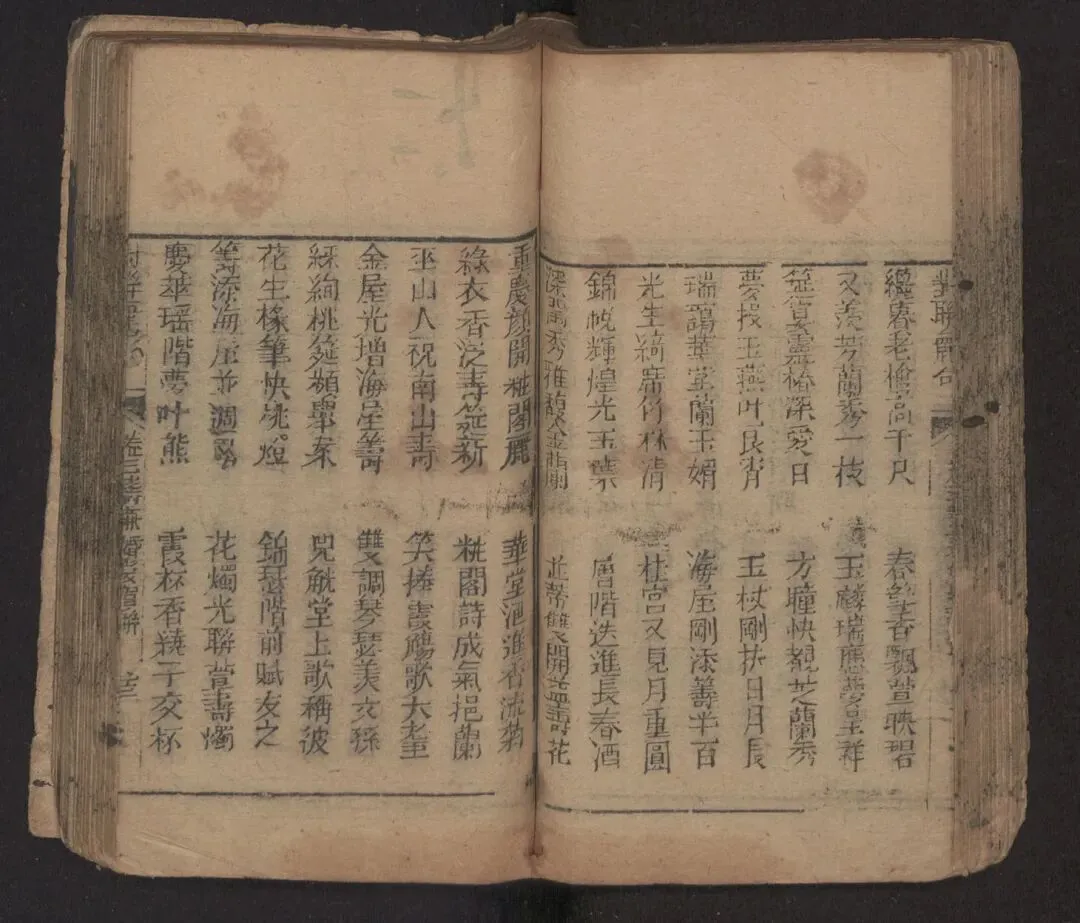 對聯羣合
纔春老檜高千尺
春筵香飄萱映碧
又羨芳蘭秀一枝
玉麟瑞應夢呈祥
筵宴靈椿深愛日
方瞳快覩芝蘭秀
夢投玉燕叶良宵
玉杖剛扶日月長
瑞藹華堂蘭玉媚
海屋剛添籌半百
光生綺席竹林清
桂宮又見月重圓
錦帨輝煌光玉葉
唐階迭進長春酒
秀雅馥金蘭
並蒂雙開益壽花
重慶顏開椒閣麗
華堂酒進香流菊
綵衣香泛壽筵新
粧閣詩成氣挹蘭
巫山人祝南山壽
笑捧霞觴歌大耋
金屋光增海屋籌
雙調琴瑟美文孫
綵絢桃筵頻舉案
兕觥堂上歌稱彼
花生椽筆快挑燈
錦瑟階前賦友之
籌添海屋並週
花燭光聯萱壽燭
慶華瑶階夢叶熊
霞杯香繞子交杯
卷三壽兼婚賀聯